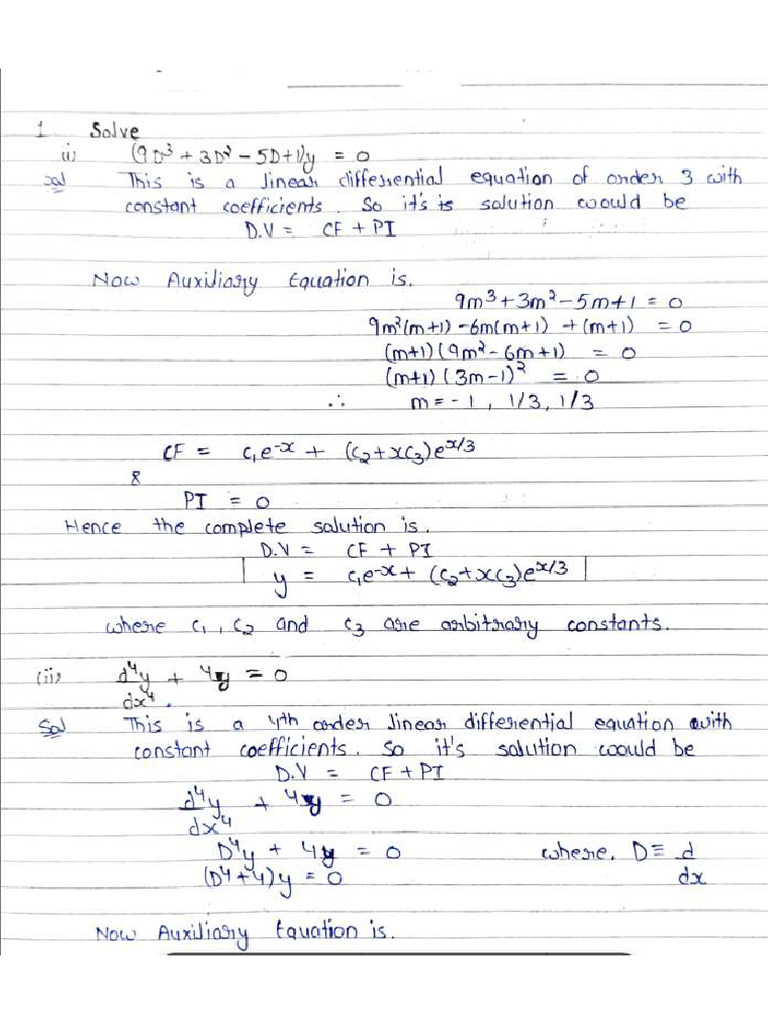 1 Solve
(i) (9D³ + 3D² - 5D+1)y = 0
Sol This is a linear differential equation of order 3 with
constant coefficients. So it's is solution would be
D.V = CF + PI
Now Auxiliary Equation is.
9m³ + 3m² - 5m + 1 = 0
9m²(m+1) - 6m(m+1) + (m+1) = 0
(m+1) (9m² - 6m + 1) = 0
(m+1) (3m - 1)² = 0
∴ m = -1, 1/3, 1/3
CF = c₁e⁻ˣ + (c₂ + xc₃)e^x/3
&
PI = 0
Hence the complete solution is.
D.V = CF + PI
y = c₁e⁻ˣ + (c₂ + xc₃)e^x/3
where c₁, c₂ and c₃ are arbitrary constants.
(ii) d⁴y/dx⁴ + 4y = 0
Sol This is a 4th order linear differential equation with
constant coefficients. So it's solution would be
D.V = CF + PI
d⁴y/dx⁴ + 4y = 0
D⁴y + 4y = 0 where, D ≡ d/dx
(D⁴ + 4)y = 0
Now Auxiliary Equation is.